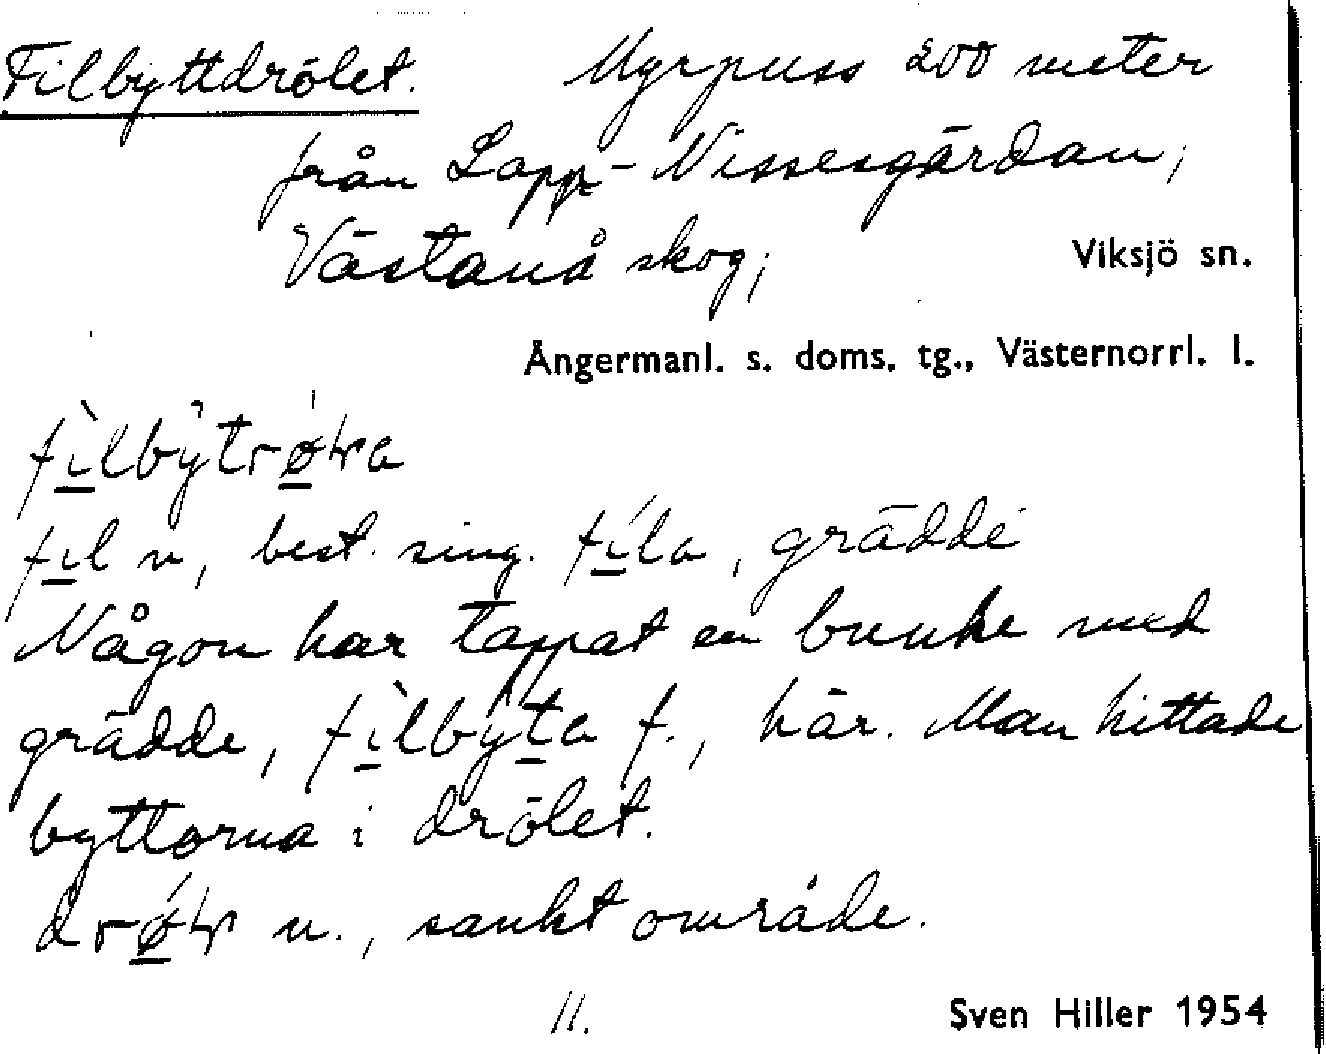 Filbyttdrölet. Myrpuss 200 meter
från Lapp-Nissesgårdan;
Västanå skog; Viksjö sn.
Ångermanl. s. doms. tg., Västernorrl. l.
fìlbỳtrøɽa
fil n, best. sing. fíla, grädde
Någon har tappat en bunke med
grädde, fìlbýta f., här. Man hittade
byttorna i drölet.
drǿɽ n., sankt område.
11.
Sven Hiller 1954